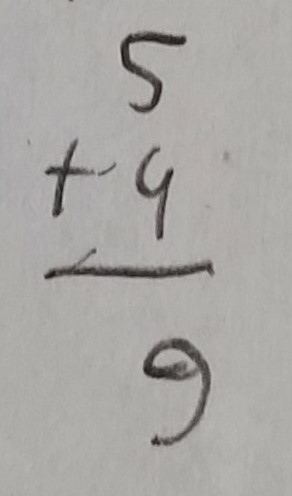 5
+ 4
9